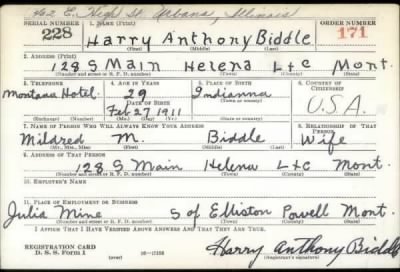 62 E. High St. Urbana, Illinois
SERIAL NUMBER 1. NAME (Print) ORDER NUMBER
228 Harry Anthony Biddle 171
(First) (Middle) (Last)
2. ADDRESS (Print)
128 S Main Helena L+C Mont.
(Number and street or R. F. D. number) (Town) (County) (State)
3. TELEPHONE 4. AGE IN YEARS 5. PLACE OF BIRTH 6. COUNTRY OF CITIZENSHIP
Montana Hotel. 29 Indianna
DATE OF BIRTH (Town or county) U.S.A.
Feb 27 1911
(Exchange) (No.) (Mo.) (Day) (Yr.) (State or country)
7. NAME OF PERSON WHO WILL ALWAYS KNOW YOUR ADDRESS 8. RELATIONSHIP OF THAT PERSON
Mildred M. Biddle Wife
(Mr., Mrs., Miss) (First) (Middle) (Last)
9. ADDRESS OF THAT PERSON
128 S Main Helena L+C Mont.
(Number and street or R. F. D. number) (Town) (County) (State)
10. EMPLOYER'S NAME
11. PLACE OF EMPLOYMENT OR BUSINESS
Julia Mine S of Elliston Powell Mont.
(Number and street or R. F. D. number) (Town) (County) (State)
I AFFIRM THAT I HAVE VERIFIED ABOVE ANSWERS AND THAT THEY ARE TRUE.
REGISTRATION CARD
D. S. S. Form 1 Harry Anthony Biddle
(Registrant's signature)